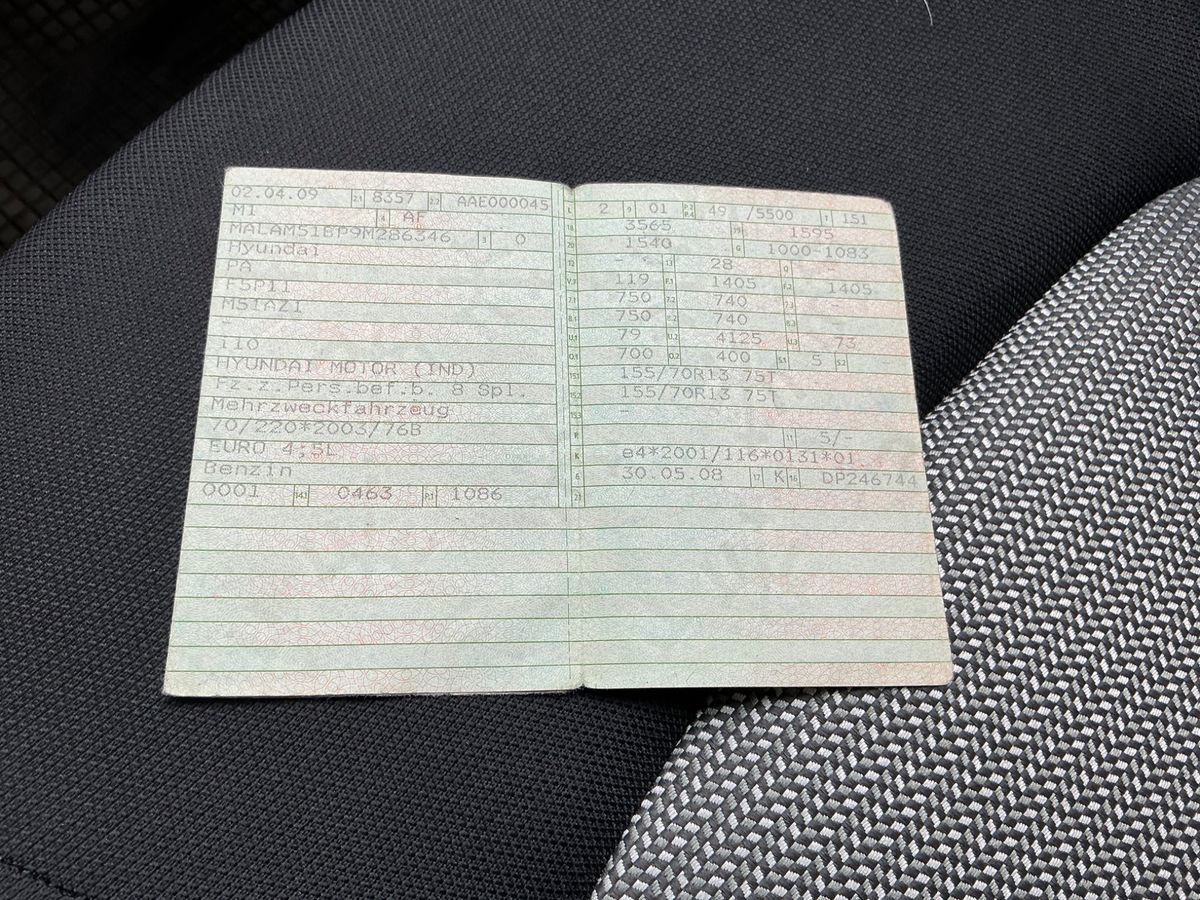 02.04.09 2.1 8357 2.2 AAE000045
M1 4 AF
MALAM51BP9M286346 3 0
Hyundai
PA
F5P11
M51AZ1
-
i10
HYUNDAI MOTOR (IND)
Fz.z.Pers.bef.b. 8 Spl.
Mehrzweckfahrzeug
70/220*2003/76B
EURO 4;5L
Benzin
0001 14.1 0463 P.1 1086
L 2 9 01 P.2 P.4 49 /5500 T 151
18 3565 19 1595
20 1540 G 1000-1083
12 - 13 28 Q -
V.7 119 F.1 1405 F.2 1405
7.1 750 7.2 740 7.3 -
8.1 750 8.2 740 8.3 -
U.1 79 U.2 4125 U.3 73
O.1 700 O.2 400 S.1 5 S.2
15.1 155/70R13 75T
15.2 155/70R13 75T
15.3 -
R 11 5/-
K e4*2001/116*0131*01..
6 30.05.08 17 K 16 DP246744
21